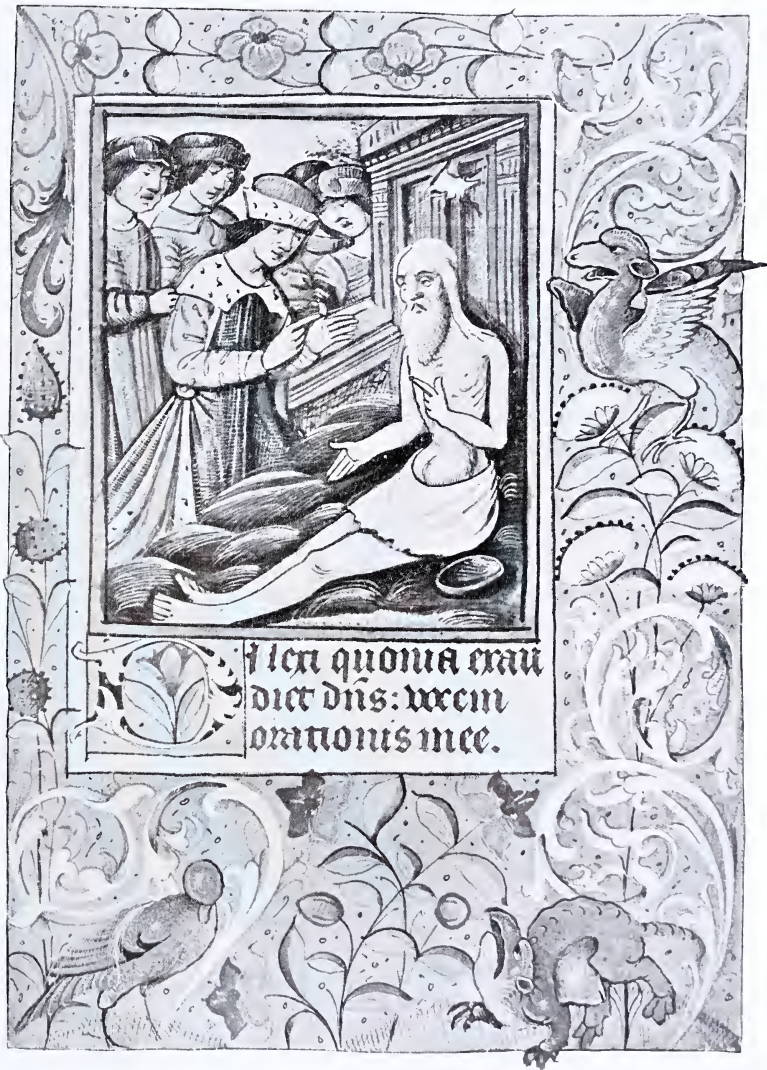 Dilexi quonia exau
diet dn̄s: vocem
orationis mee.